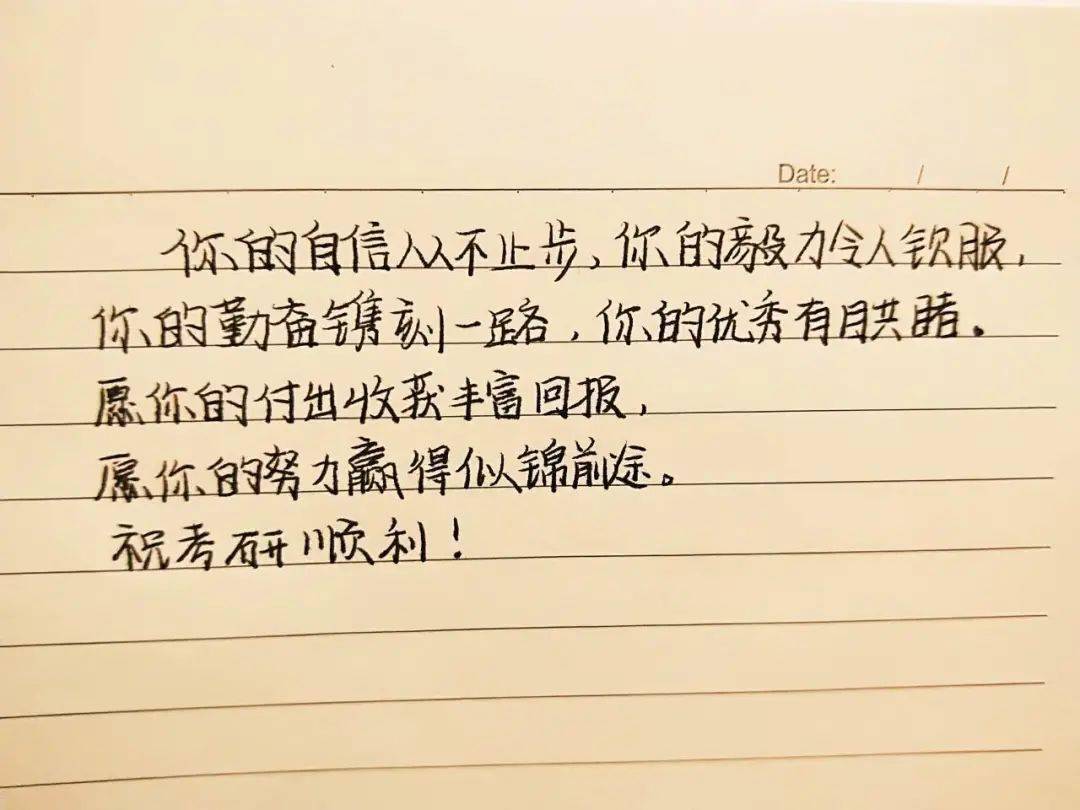 Date: / /
你的自信从不止步，你的毅力令人钦服，
你的勤奋镌刻一路，你的优秀有目共睹。
愿你的付出收获丰富回报，
愿你的努力赢得似锦前途。
祝考研顺利！